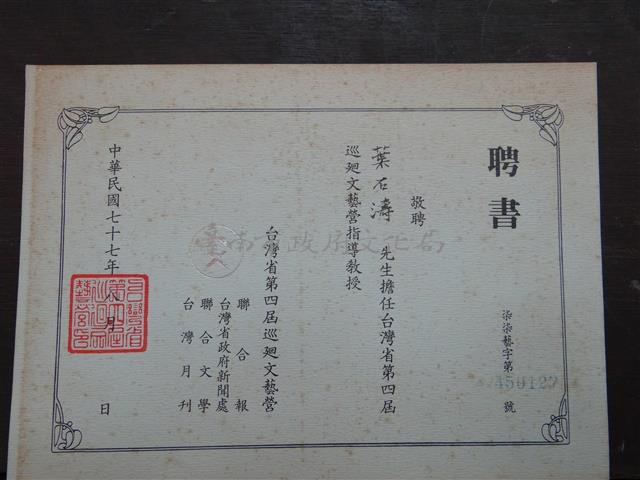 聘書
染染藝字第450127號
敬聘
葉石濤 先生擔任台灣省第四屆
巡廻文藝營指導教授
台灣省第四屆巡廻文藝營
聯合報
台灣省政府新聞處
聯合文學
台灣月刊
中華民國七十七年八月 日
臺南市政府文化局